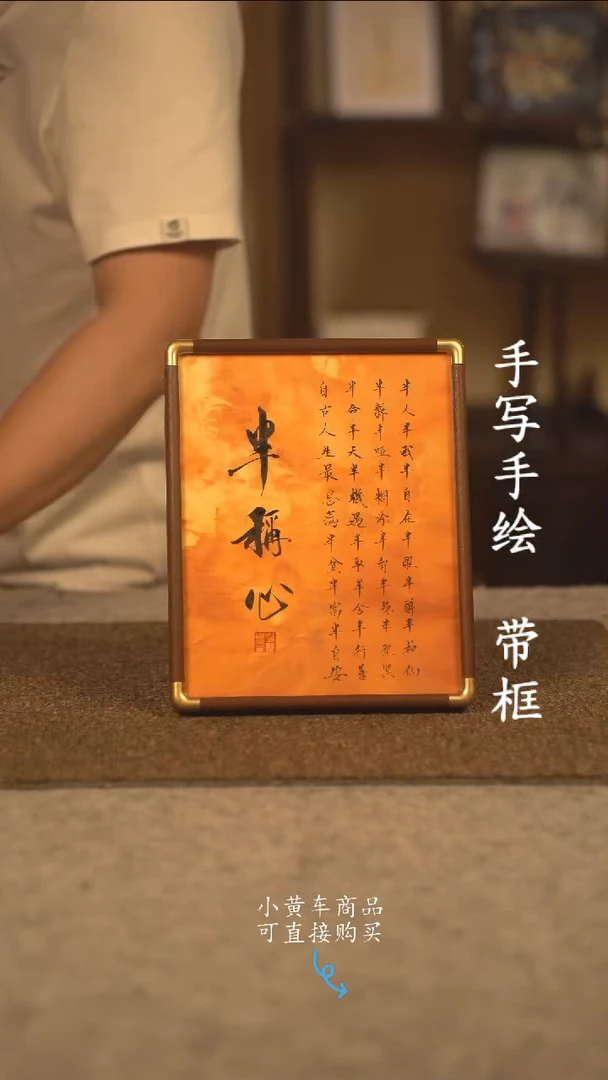 半人半我半自在半醒半醉半神仙
半聾半啞半糊塗半智半愚半聖賢
半命半天半機遇半取半舍半行善
自古人生最忌滿半貧半富半自安
半稱心
手写手绘 带框
小黄车商品
可直接购买